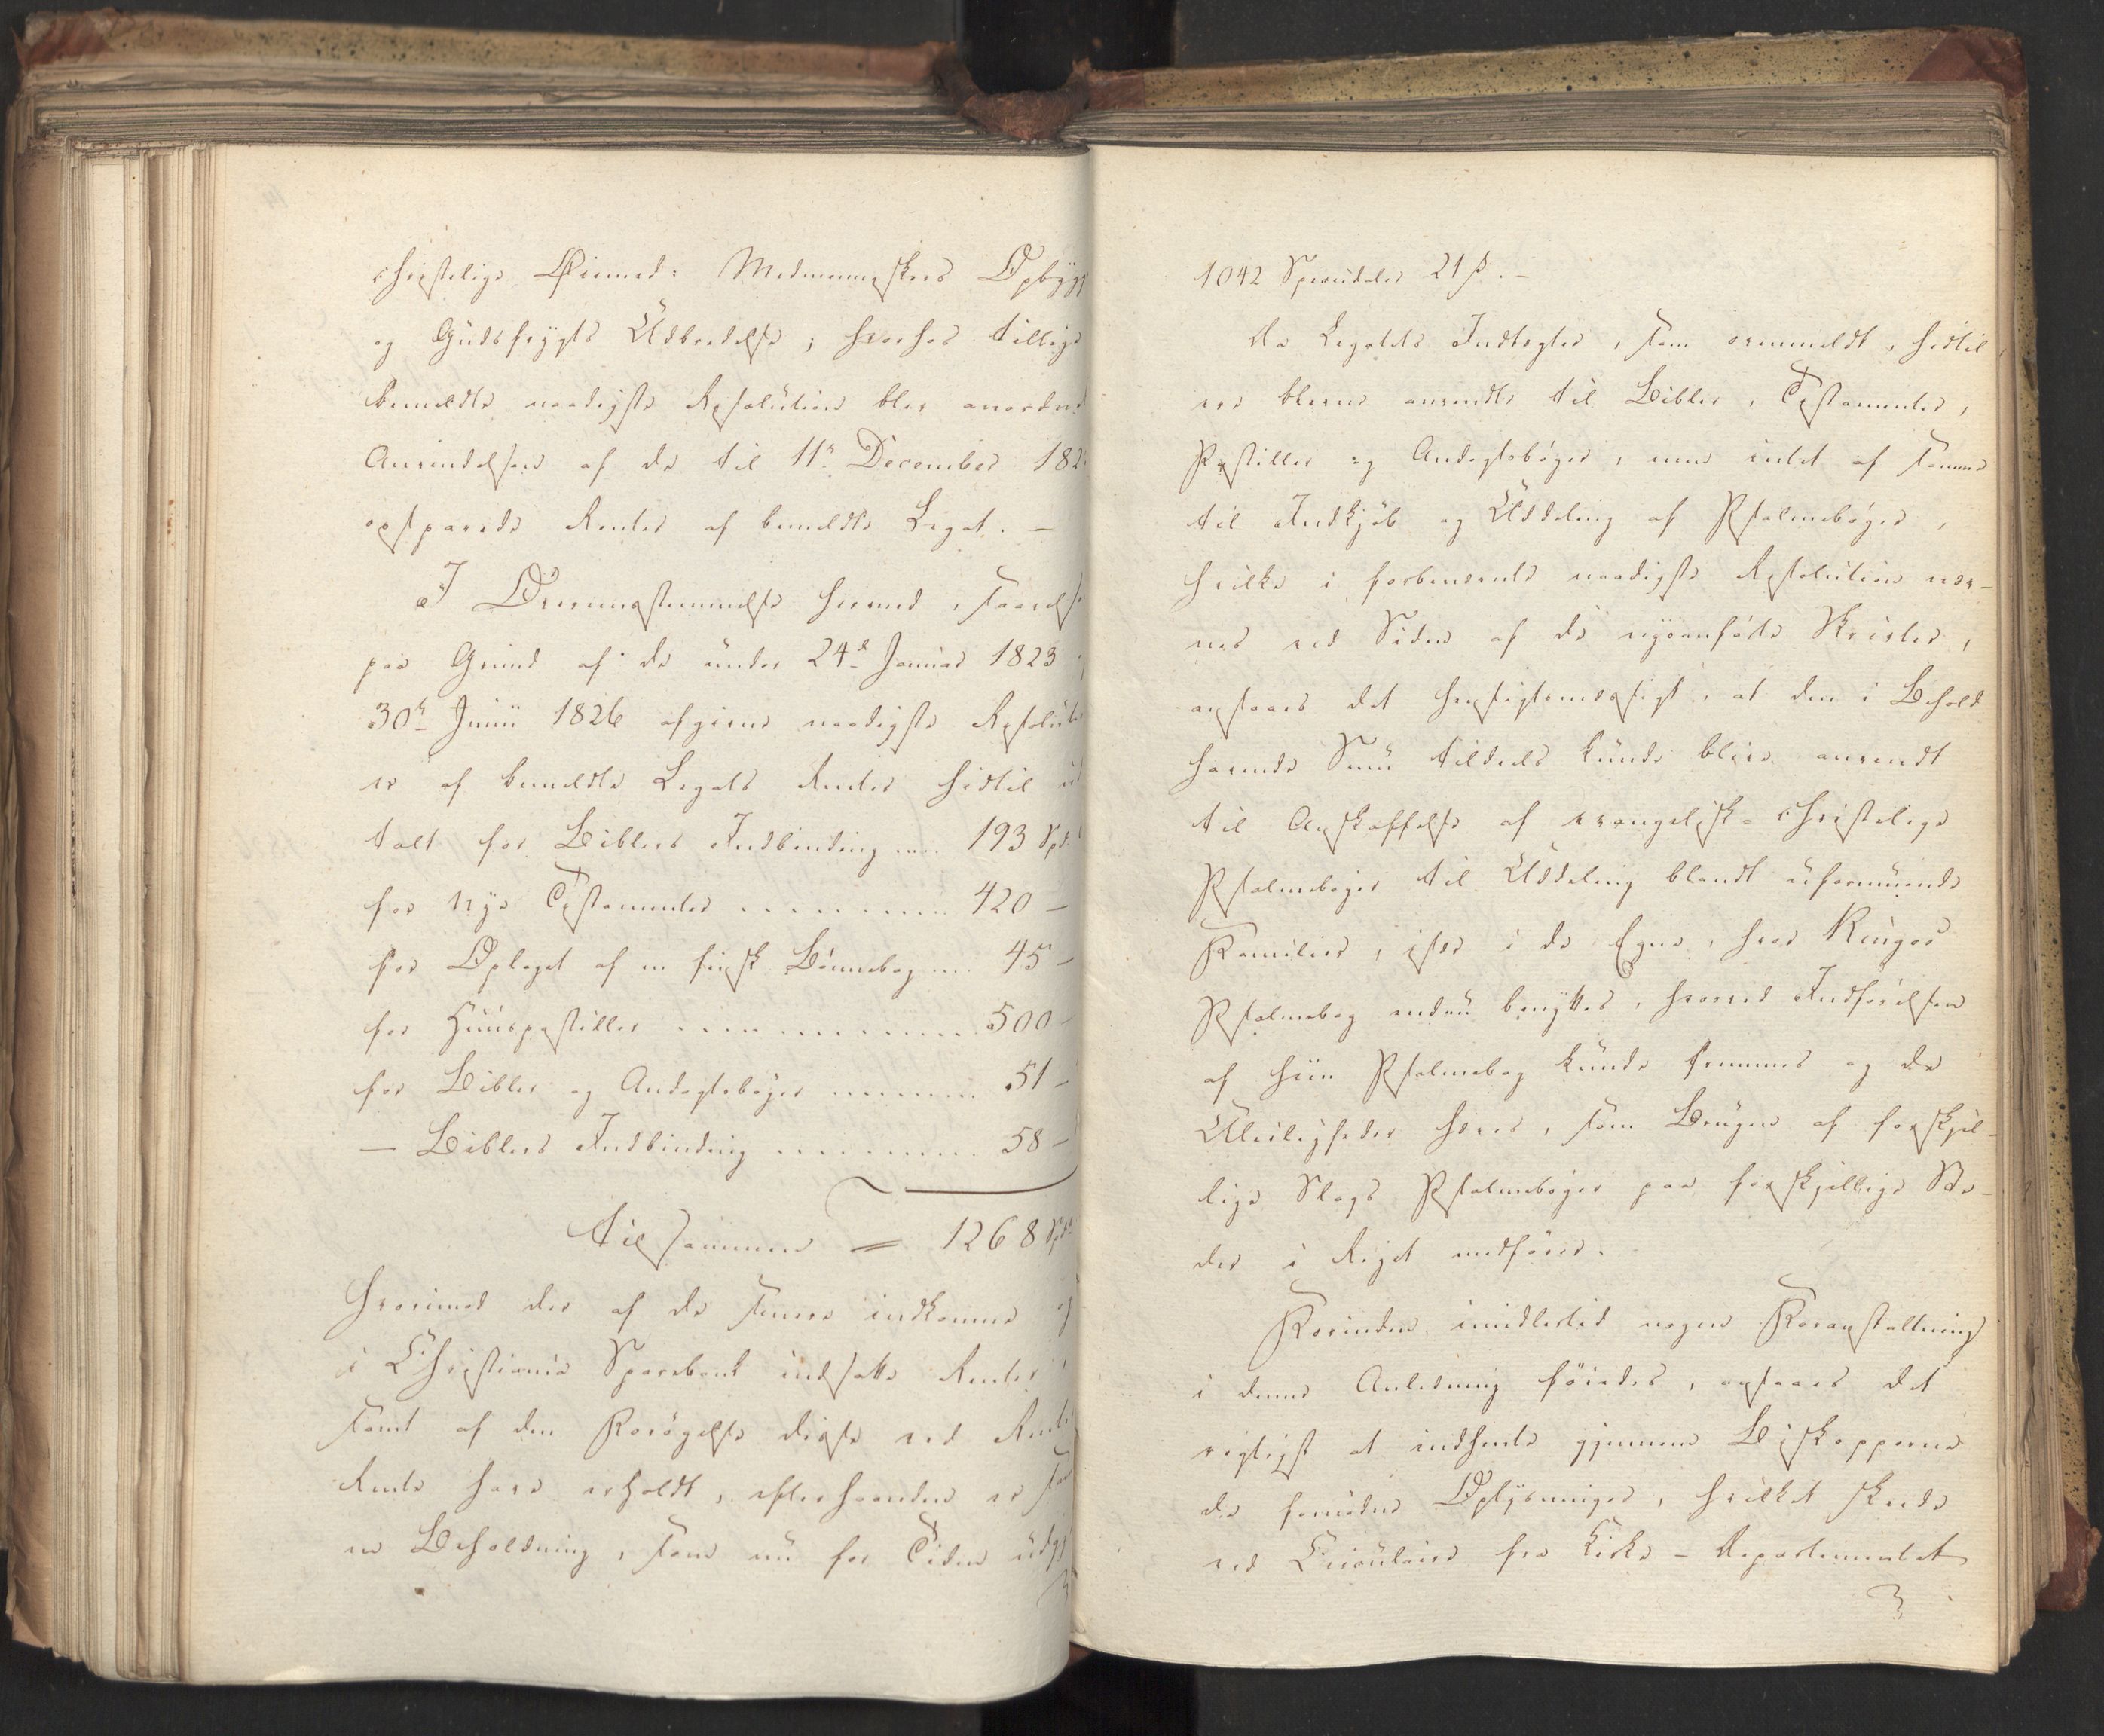 christelige Øiemed: Medmenneskers Opbygg
og Gudsfrygts Udbredelse; hvorhos tillige
bemeldte naadigste Resolution blev anordne
Anvendelsen af de til 11te December 182
opsparede Renter af bemeldte Legat. —
I Overeensstemmelse hermed, saavelso
paa Grund af de under 24de Januar 1823 o
30te Junii 1826 afgivne naadigste Resolutio
er af bemeldte Legats Renter hidtil ud
talt for Biblers Indbinding .... 193 Spd
for nye Testamenter .......... 420 —
for Oplaget af en finsk Bönnebog ... 45 —
for Huuspostiller ............. 500 —
for Bibler og Andagtsböger ........ 51 —
— Biblers Indbinding .......... 58 —
Tilsammen = 1268 Spd
Hvorimod der af de senere indkomne og
i Christiania Sparebank indsatte Renter,
samt af den Forögelse disse ved Rente
Rente have erholdt, efterhaanden er
en Beholdning, som nu for Tiden udgj
1042 Speciedaler 21 ß. —
Da Legatets Indtægter, som ovenmeldt, hidtil
ere blevne anvendte til Bibler, Testamenter,
Postiller og Andagtsböger, men intet af samme
til Indkjöb og Uddeling af Psalmeböger,
hvilke i forbenævnte naadigste Resolution næv-
nes ved Siden af de nysanförte Skrifter,
ansaaes det hensigtsmæssigt, at den i Behold
havende Sum tildeels kunde blive anvendt
til Anskaffelse af evangelisk-christelige
Psalmeböger til Uddeling blandt uformuende
Familier, især i de Egne, hvor Kingos
Psalmebog endnu benyttes, hvorved Indförelsen
af hiin Psalmebog kunde fremmes og de
Uleiligheder hæves, som Brugen af forskjel-
lige Slags Psalmeböger paa forskjellige Ste-
der i Riget medförer.
Forinden imidlertid nogen Foranstaltning
i denne Anledning föiedes, ansaaes det
rigtigst at indhente gjennem Biskopperne
de fornödne Oplysninger, hvilket skeede
ved Circulaire fra Kirke-Departementet